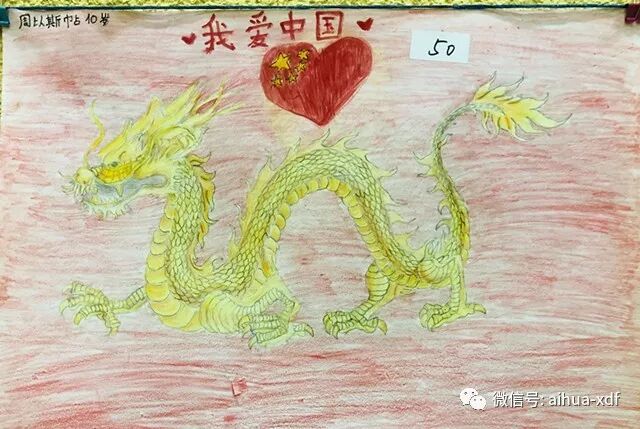 周以斯帖 10岁
我爱中国
50
微信号: aihua-xdf